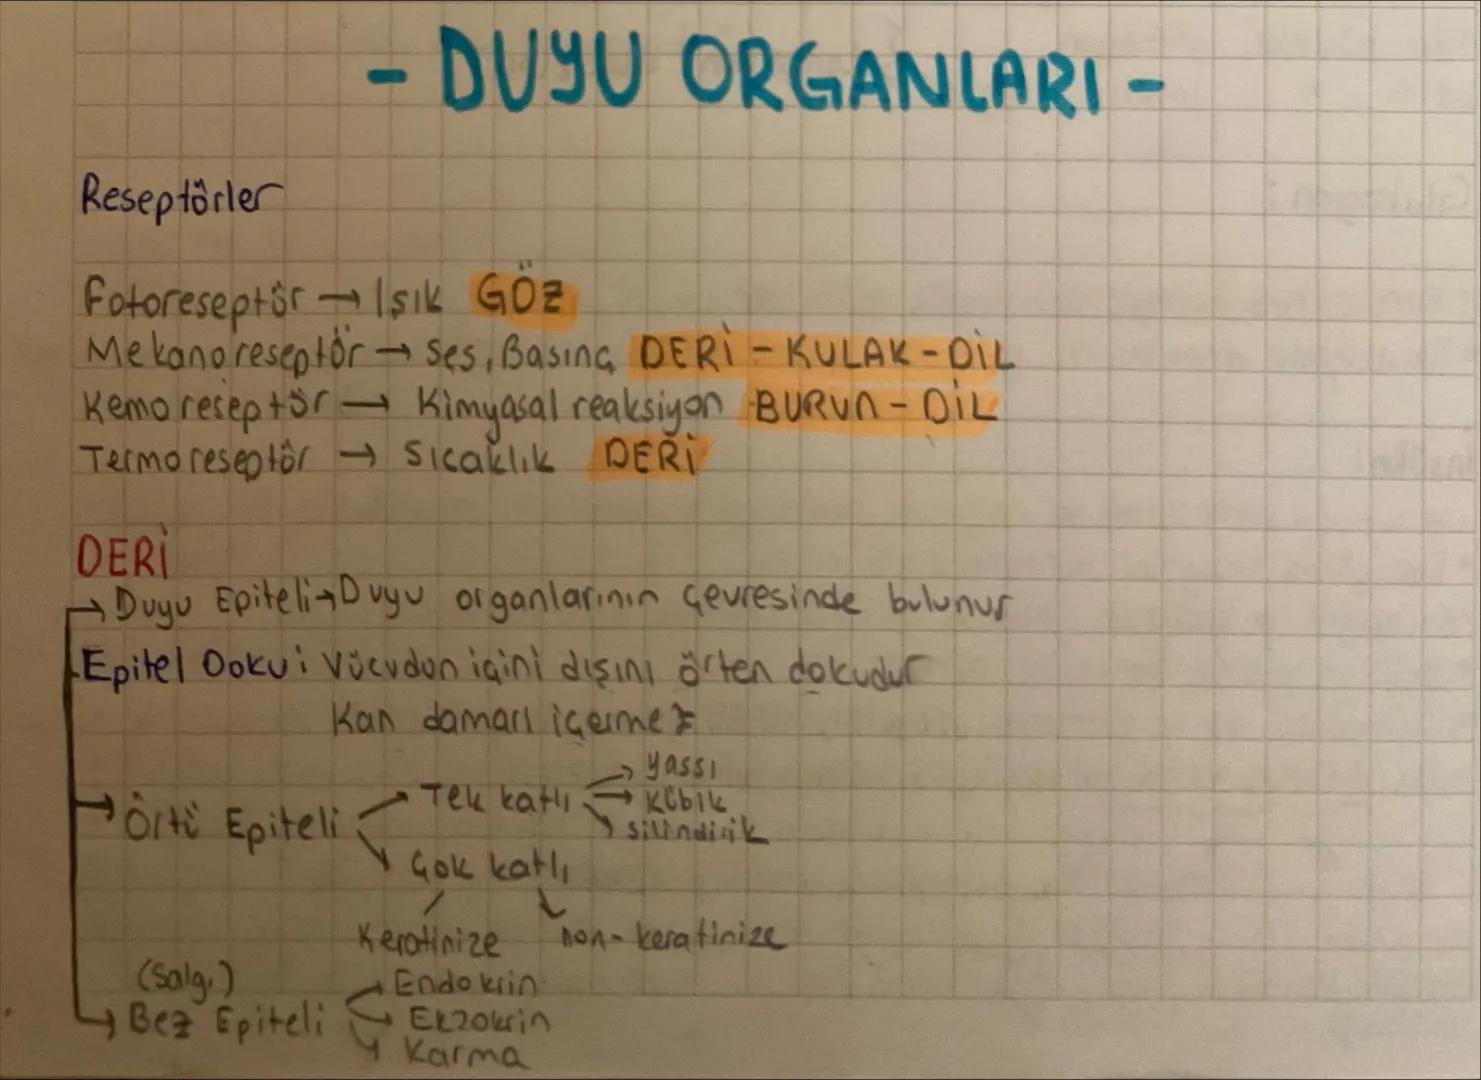 - DUYU ORGANLARI -
Reseptörler
Fotoreseptör → Işık GÖZ
Mekanoreseptör → Ses, Basınç DERİ - KULAK - DİL
Kemoreseptör → Kimyasal reaksiyon BURUN - DİL
Termoreseptör → Sıcaklık DERİ
DERİ
→ Duyu Epiteli → Duyu organlarının çevresinde bulunur
Epitel Doku: Vücudun içini dışını örten dokudur
Kan damarı içermez
→ Örtü Epiteli → Tek katlı → yassı
→ Kübik
→ silindirik
→ Çok katlı
Keratinize non-keratinize
(Salgı)
→ Bez Epiteli → Endokrin
→ Ekzokrin
→ Karma